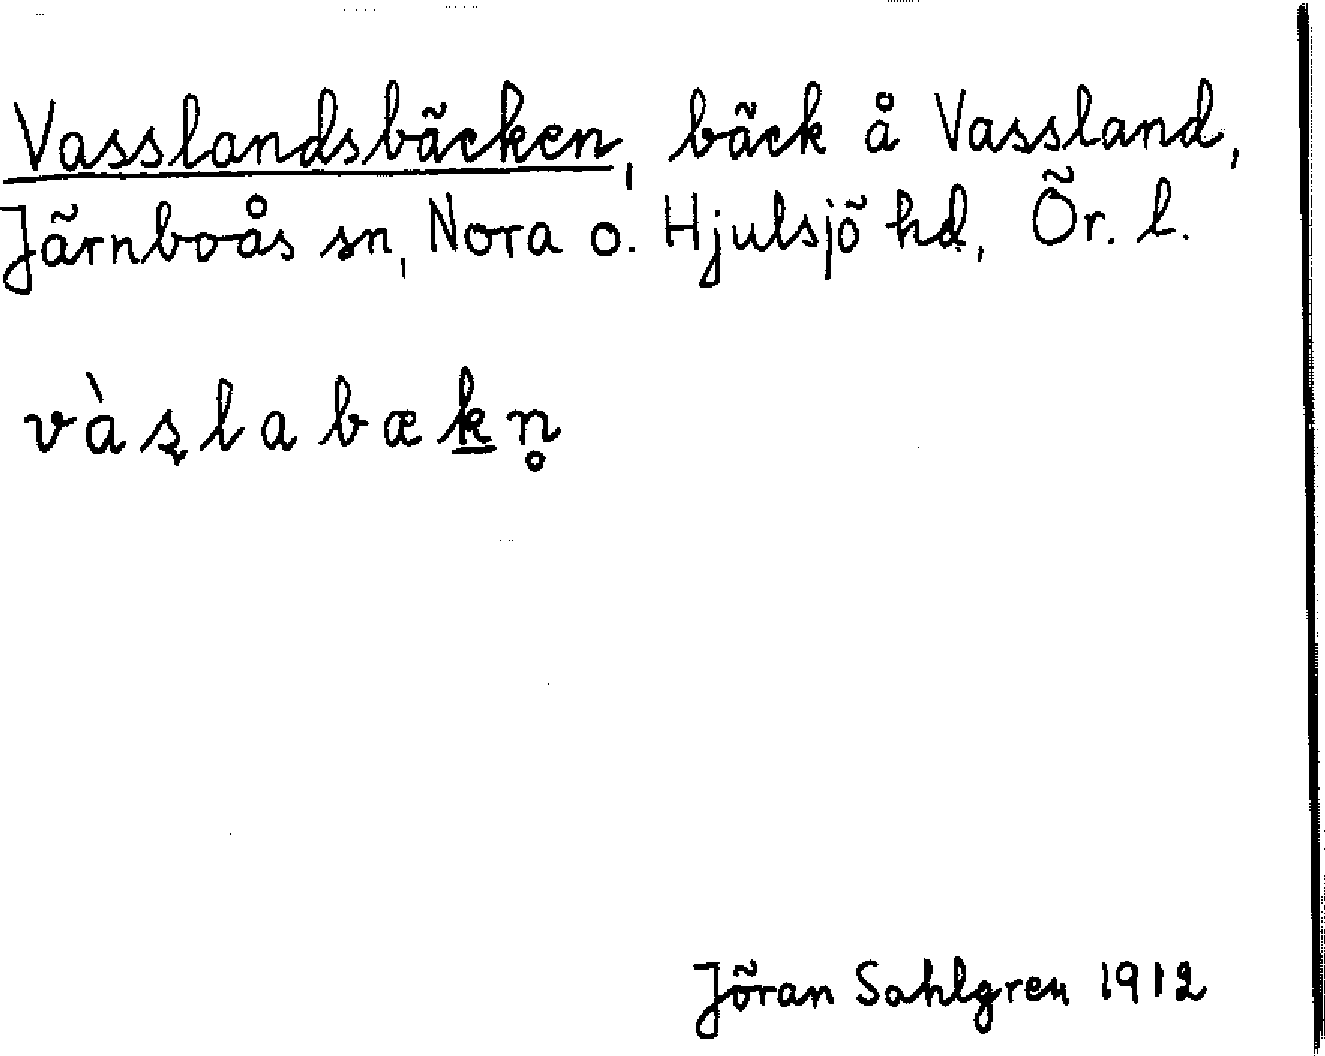 Vasslandsbäcken, bäck å Vassland,
Järnboås sn, Nora o. Hjulsjö hd, Ör. l.
vàs̨labæk̲n̥
Jöran Sahlgren 1912